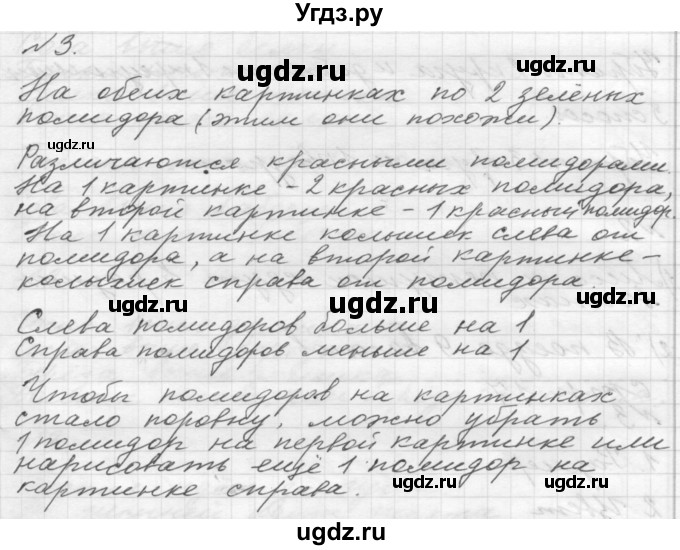 Угдз.ру
№3.
ugdz.ru
ugdz.ru
На обеих картинках по 2 зелёных
помидора (этим они похожи).
ugdz.ru
ugdz.ru
Различаются красными помидорами.
На 1 картинке - 2 красных помидора,
на второй картинке - 1 красный помидор.
На 1 картинке колышек слева от
помидора, а на второй картинке -
колышек справа от помидора.
ugdz.ru
ugdz.ru
Слева помидоров больше на 1
Справа помидоров меньше на 1
Чтобы помидоров на картинках
стало поровну, можно убрать
1 помидор на первой картинке или
нарисовать ещё 1 помидор на
картинке справа.
ugdz.ru
ugdz.ru
ugdz.ru